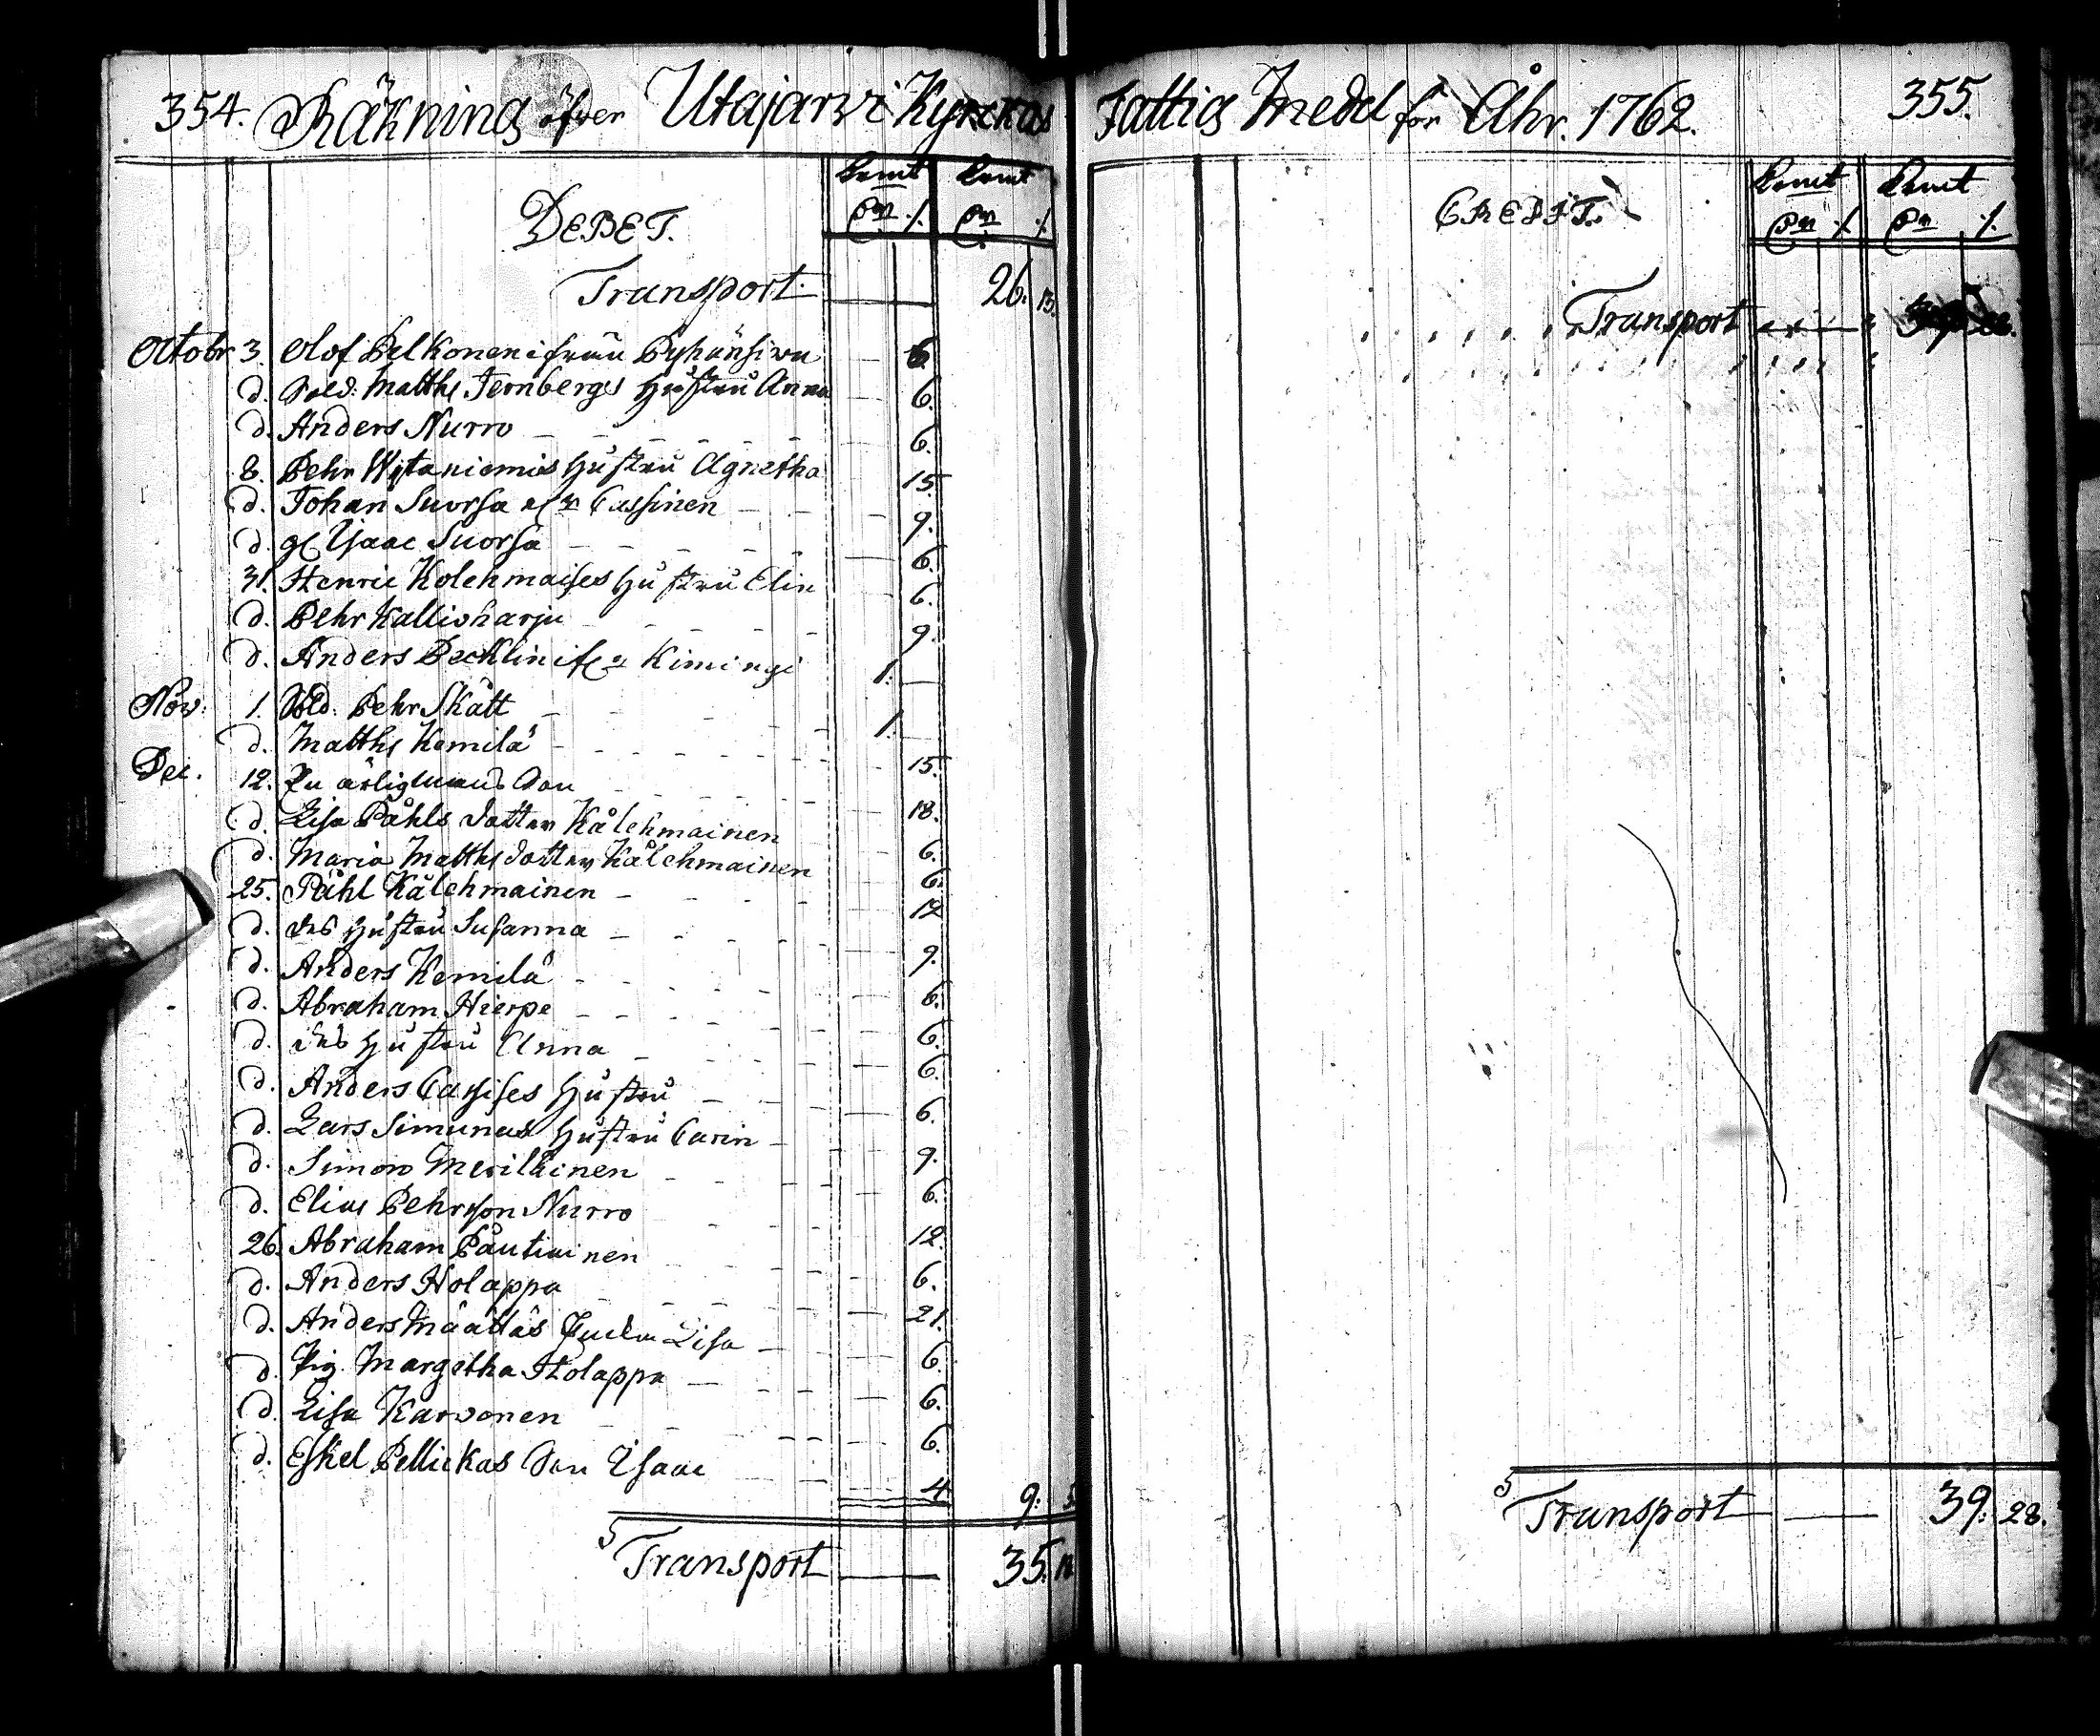 354. Räkning öfwer Utajarwi Kyrckas
DEBET.
Kpmt Kpmt
Transport. — 26. 13.
Octobr 3. Olof Pelkonen ifrån Pyhänsiwu — 6
d. Sold. Matths Fernbergs Hustru Anna — 6.
d. Anders Nurro — 6.
8. Pehr Ystaniemis Hustru Agnetha — 15.
d. Johan Suorsa Cassinen — 9.
d. gl Isaac Suorsa — 6.
31. Henric Kolehmaises Hustru Elin — 6.
d. Pehr Kallioharju — 9.
d. Anders Pecklin if: Kimingi 1. —
Nov. 1. Sold. Pehr Skått 1. —
d. Matths Kemilä — 15.
Dec. 12. En ärlig mans Son — 18.
d. Lisa Påhls dotter Kålehmainen — 6.
d. Maria Matths dotter Kålehmainen — 6.
25. Påhl Kålehmainen — 12
d. des Hustru Susanna — 9.
d. Anders Kemilä — 6.
d. Abraham Hierpe — 6.
d. des Hustru Anna — 6.
d. Anders Cassises Hustru — 6.
d. Lars Simunas Hustru Carin — 9.
d. Simon Meriläinen — 6.
d. Elias Pehrsson Nurro — 12.
26. Abraham Pautiainen — 6.
d. Anders Holappa — 21.
d. Anders Määttäs Lisa — 6.
d. Pig. Margetha Holappa — 6.
d. Lisa Karvonen — 6.
d. Eskel Pellickas Son Isaac
4 9: 5
Transport — 35. 18
Fattigs Medel för Åhr. 1762. 355.
CREDIT.
Kpmt Kpmt
Transport
Transport — 39: 28.